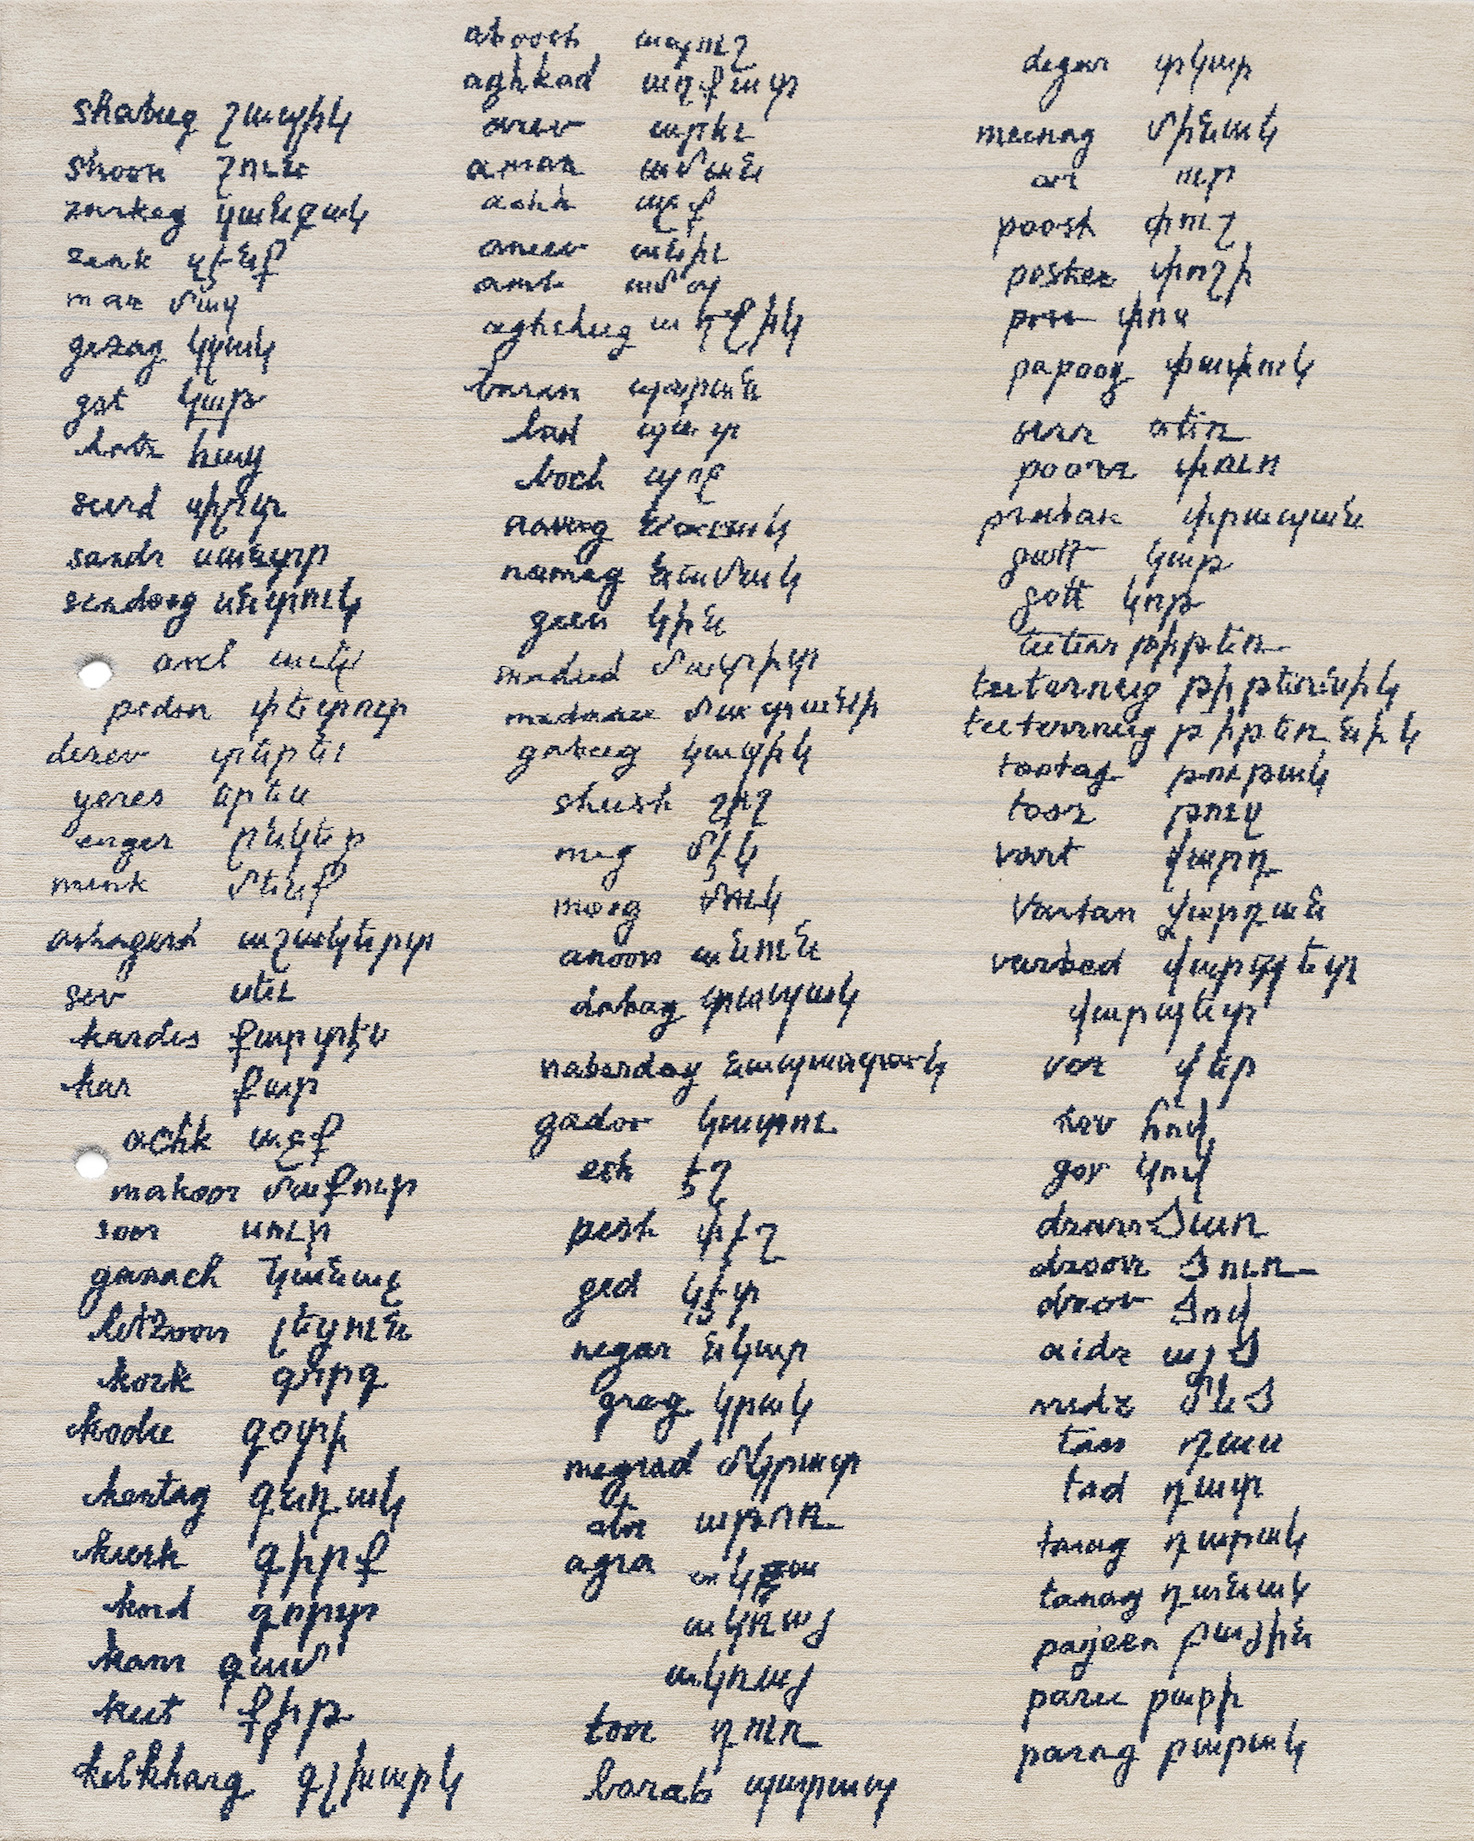 shabeeg շապիկ
shoon շուն
zarkeg կանչան
zenk զէնք
maz մազ
gezag կզակ
gat կաթ
hatz հաց
seerd սիրտ
sandr սանտր
sendoog սնտուկ
axel առել
pedoor փետուր
derev տերեւ
yeres երես
enger ընկեր
menk մենք
ashagerd աշակերտ
sev սեւ
kardes քարտէս
kar քար
achk աչք
makoor մաքուր
soor սուր
ganach կանաչ
letzoon լեցուն
kork գորգ
kodee գօտի
kentag գնդակ
keerk գիրք
kord գորտ
kam գամ
keet քիթ
kelkharg գլխարկ
aboosh ապուշ
aghkad աղքատ
arev արեւ
aman աման
achk աչք
aneev անիւ
amb ամպ
aghcheeg աղջիկ
baran պարան
bad պատ
boch պոչ
navag նաւակ
namag նամակ
geen կին
madeed մատիտ
madanee մատանի
gabeeg կապիկ
sheesh շիշ
meg մէկ
moog մուկ
anoon անուն
dabag տապակ
nabasdag նապաստակ
gadoo կատու
esh էշ
pesh փէշ
ged կէտ
negar նկար
grag կրակ
megrad մկրատ
ator աթոռ
agra
ակռայ
ակռայ
toor դուռ
barab պարապ
degar տկար
meenag մինակ
ar առ
poosh փուշ
poshee փոշի
por փոս
papoog փափուկ
serr սեռ
poorr փուռ
praban փրապան
gatt կաթ
gott կոթ
teeterr թիթեռ
teeterneeg թիթեռնիկ
teeterrneeg թիթեռնիկ
tootag թութակ
tooz թուզ
vart վարդ
Vartan վարդան
varbed վարպետ
վարպետ
ver վեր
hov հով
gov կով
dzarr ծառ
dzoorr ծուռ
dzov ծով
aidz այծ
medz մեծ
tas դաս
tad դատ
tarag դարակ
tanag դանակ
pajeen բաժին
paree բարի
parag բարակ